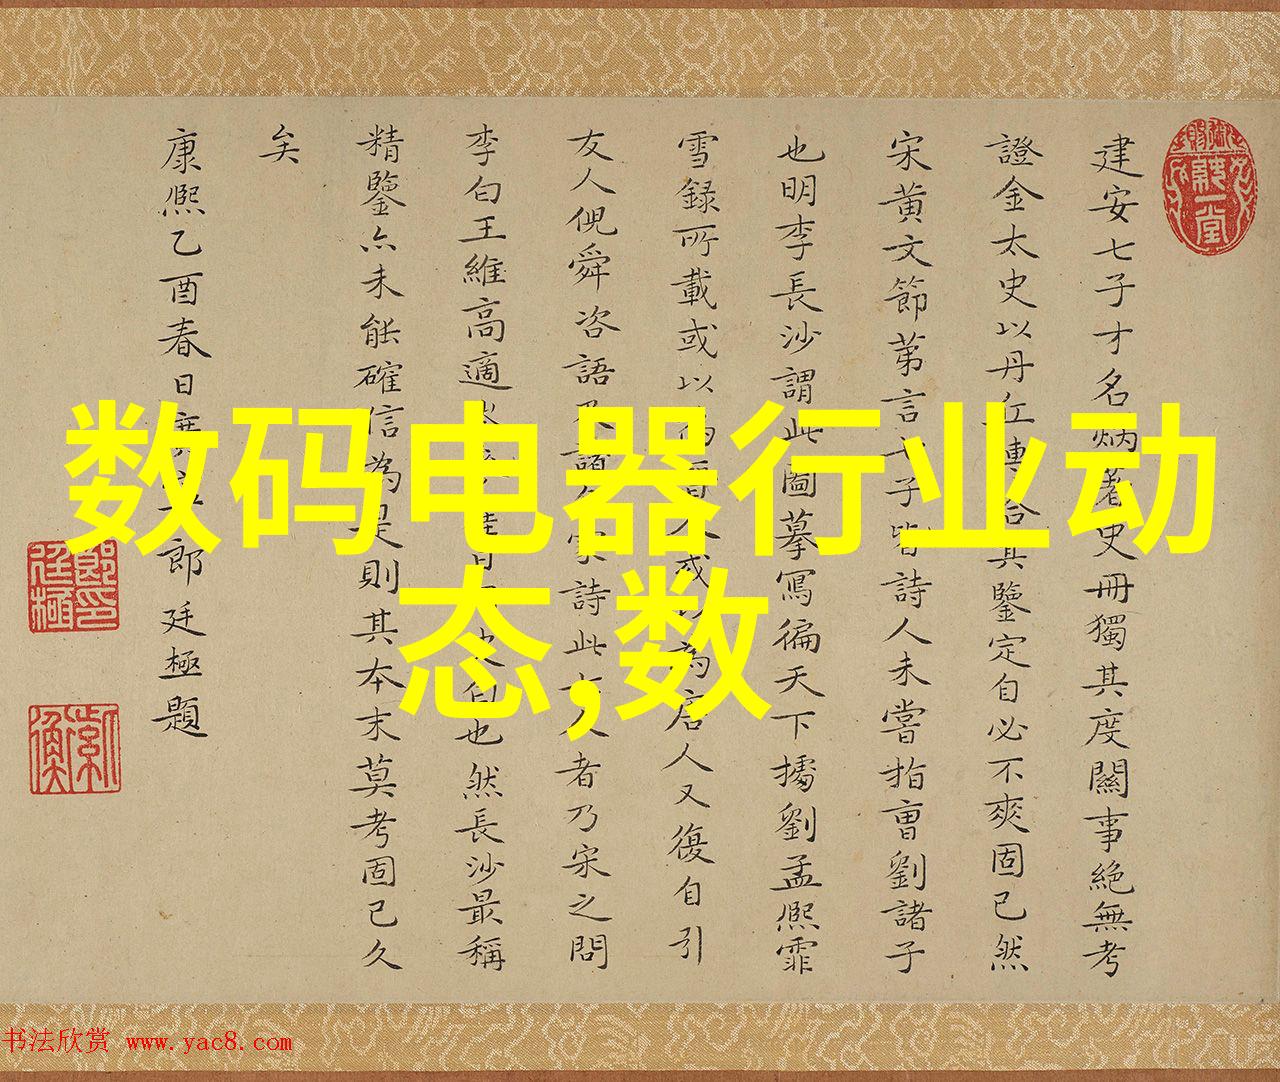 建安七子才名炳著史冊獨其度關事絕無考
證金太史以丹丘轉合其鑒定自必不爽固已然
宋黃文節第言七子皆詩人未嘗指曹劉諸子
也明李長沙謂此圖摹寫徧天下據劉孟熙霏
雪錄所載或以為晉人或以為唐人又復自引
友人倪舜咨語
家詩此七人者乃宋之問
李白王維高適
史白也然長沙最稱
精鑒亦未能確信為是則其本末莫考固已久
矣
康熙乙酉春日
郎廷極題
数码电器行业动
态,数
书法欣赏 www.yac8.com